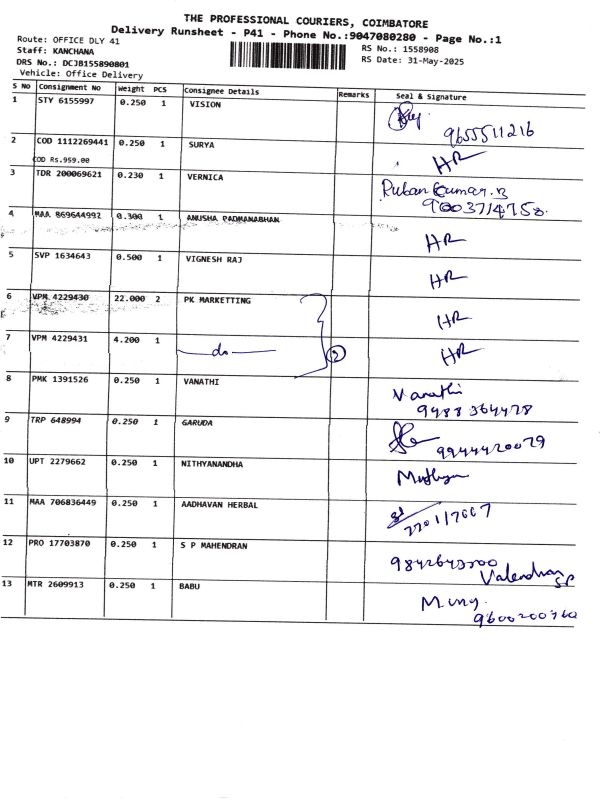 THE PROFESSIONAL COURIERS, COIMBATORE
Delivery Runsheet - P41 - Phone No.:9047080280 - Page No.:1
Route: OFFICE DLY 41
Staff: KANCHANA
DRS No.: DCJB155890801
Vehicle: Office Delivery
RS No.: 1558908
RS Date: 31-May-2025
S No Consignment No Weight PCS Consignee Details Remarks Seal & Signature
1 STY 6155997 0.250 1 VISION
9655511216
2 COD 1112269441 0.250 1 SURYA HR
COD Rs.959.00
3 TDR 200069621 0.230 1 VERNICA Ruban Kumar.B
9003714758
4 MAA 869644992 0.300 1 ANUSHA PADMANABHAN HR
5 SVP 1634643 0.500 1 VIGNESH RAJ HR
6 VPM 4229430 22.000 2 PK MARKETTING HR
7 VPM 4229431 4.200 1 do 3 HR
8 PMK 1391526 0.250 1 VANATHI Vanathi
9488364478
9 TRP 648994 0.250 1 GARUDA 9944420079
10 UPT 2279662 0.250 1 NITHYANANDHA
11 MAA 706836449 0.250 1 AADHAVAN HERBAL
12 PRO 17703870 0.250 1 S P MAHENDRAN
13 MTR 2609913 0.250 1 BABU